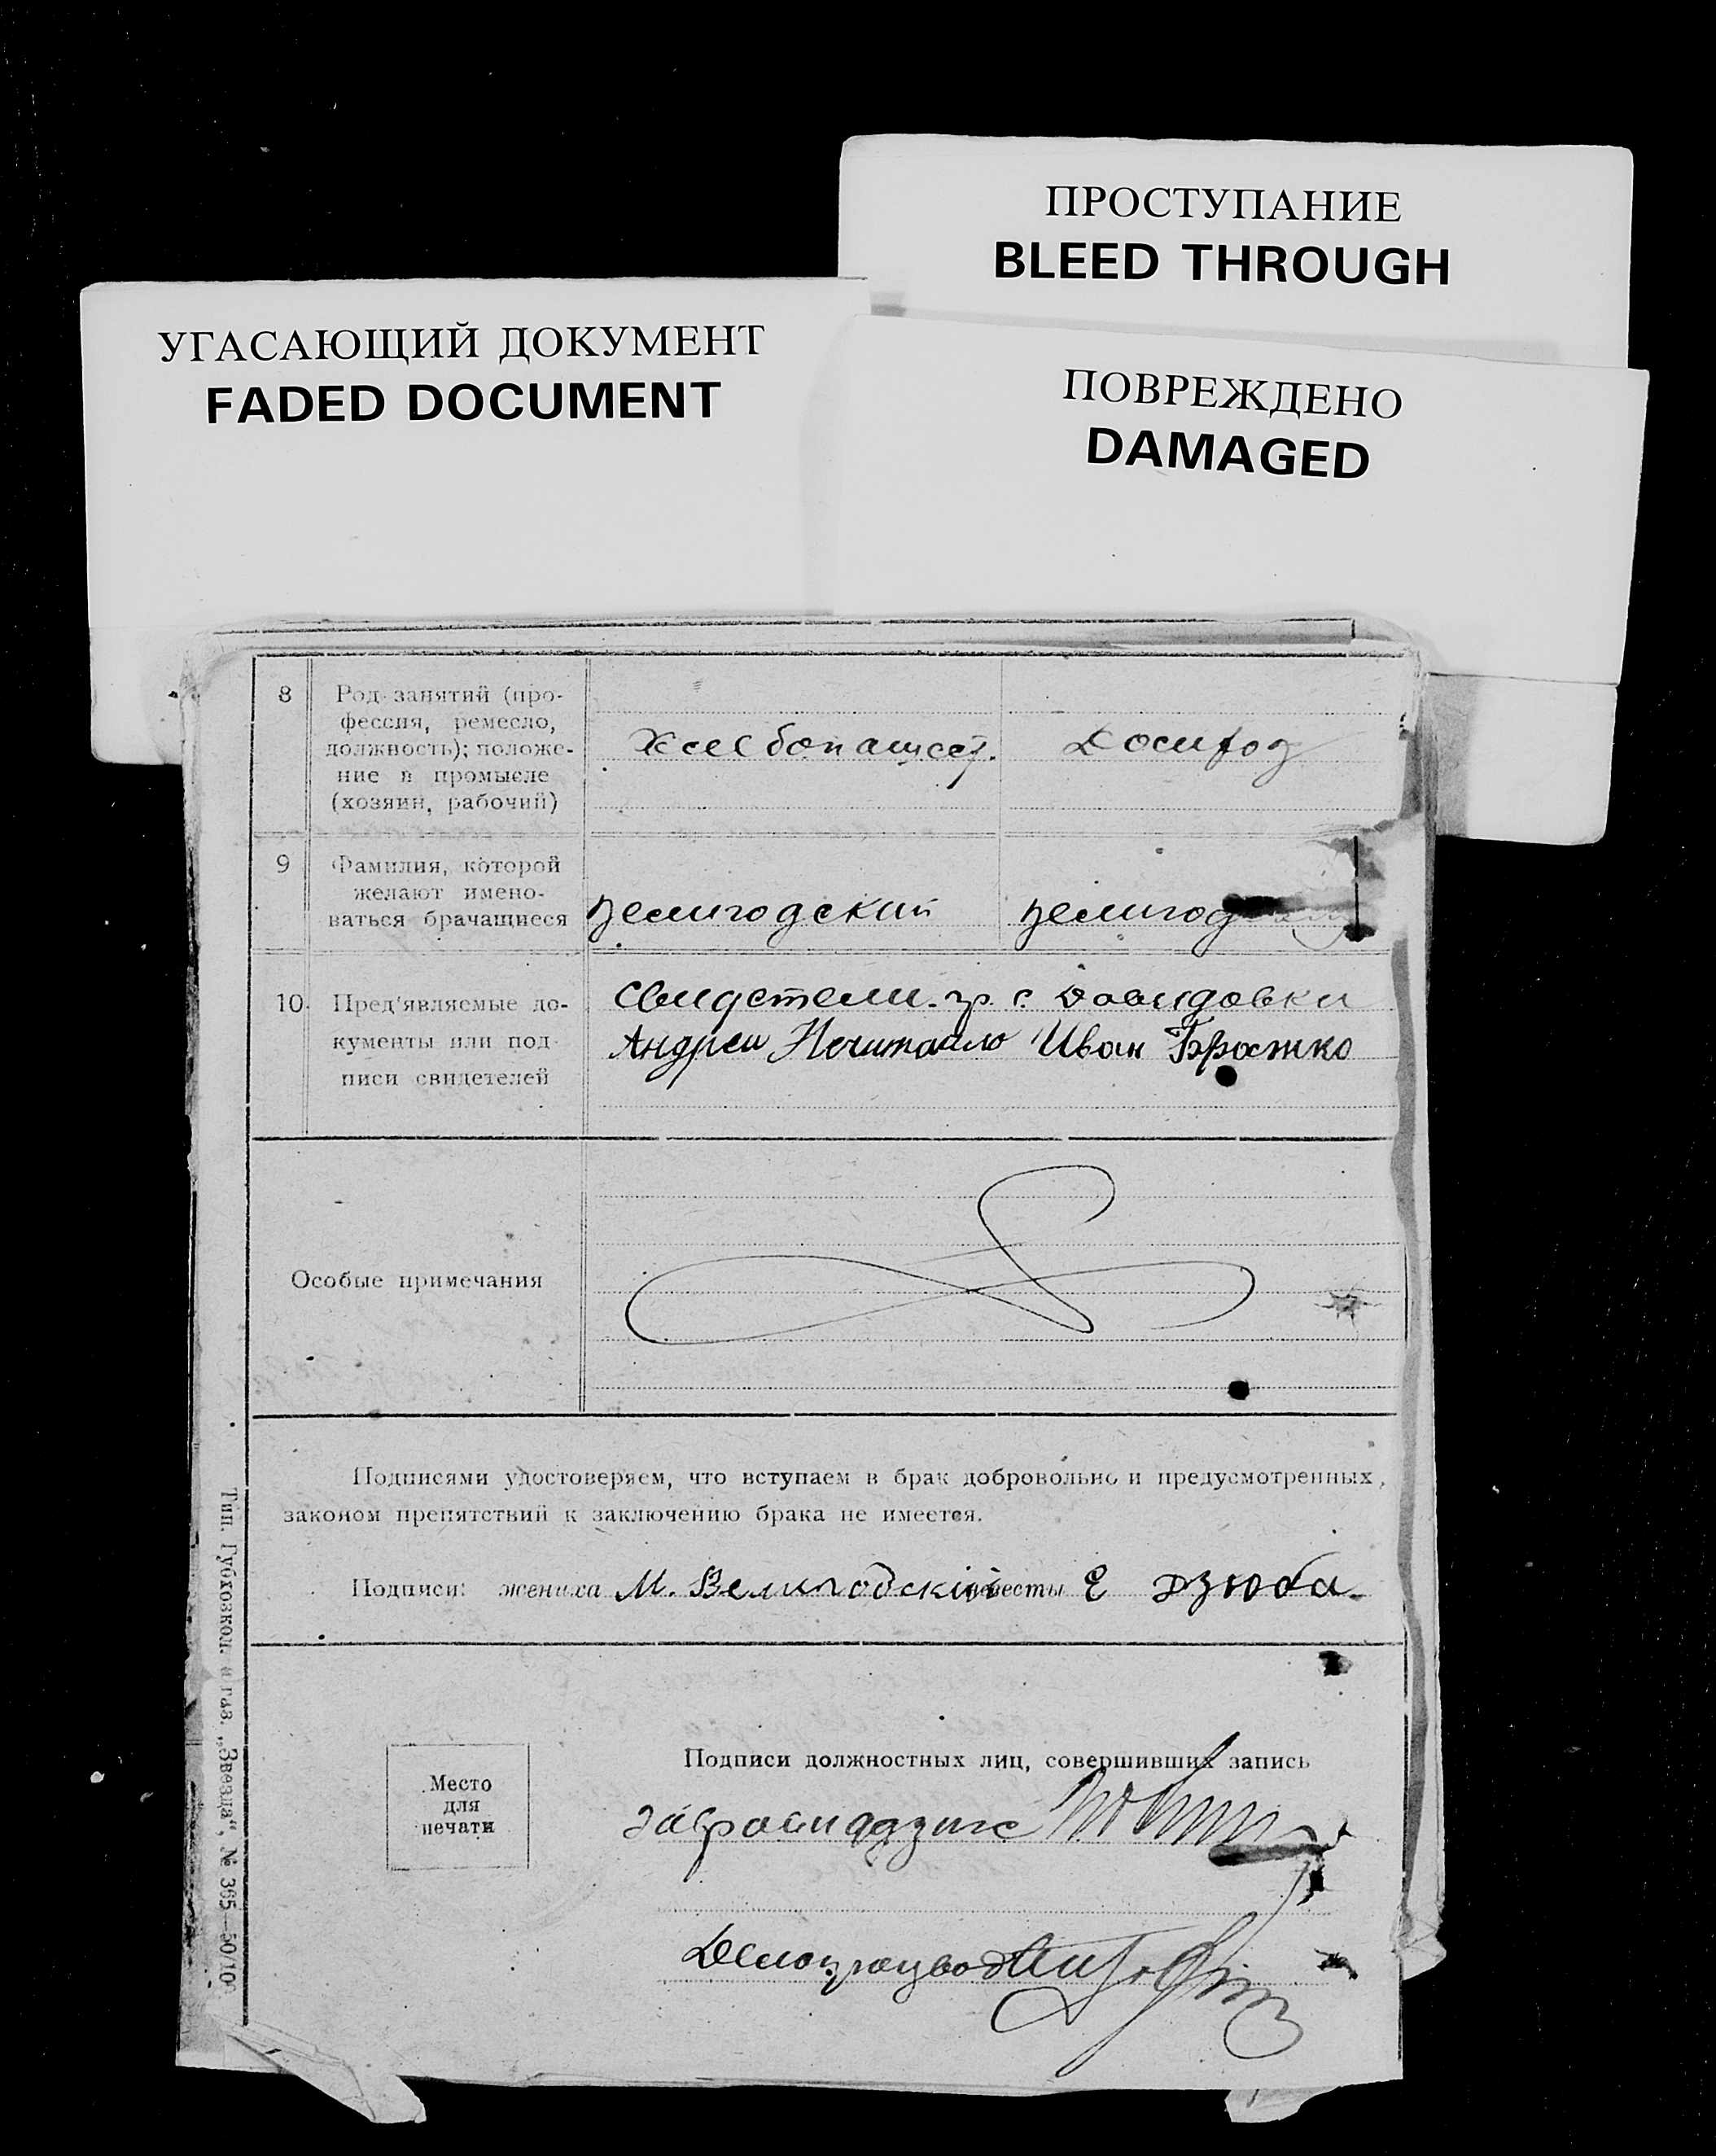 ПРОСТУПАНИЕ
BLEED THROUGH
УГАСАЮЩИЙ ДОКУМЕНТ
FADED DOCUMENT
ПОВРЕЖДЕНО
DAMAGED
8
Род занятий (про-
фессия, ремесло,
должность); положе-
ние в промысле
(хозяин, рабочий)
Хлебопашест.
Домхоз
9
Фамилия, которой
желают имено-
ваться брачащиеся
Велигодский
Велигод
10
Пред'являемые до-
кументы или под-
писи свидетелей
Свидетели. гр. с. Давидовки
Андрей Нечитайло Иван Бражко
Особые примечания
Подписями удостоверяем, что вступаем в брак добровольно и предусмотренных
законом препятствий к заключению брака не имеется.
Подписи: жениха М. Велигодский невесты Е Дзюба
Место
для
печати
Подписи должностных лиц, совершивших запись
Делопроизвод
Тип. Губтозкол. и газ. „Звезда", № 365—50/10